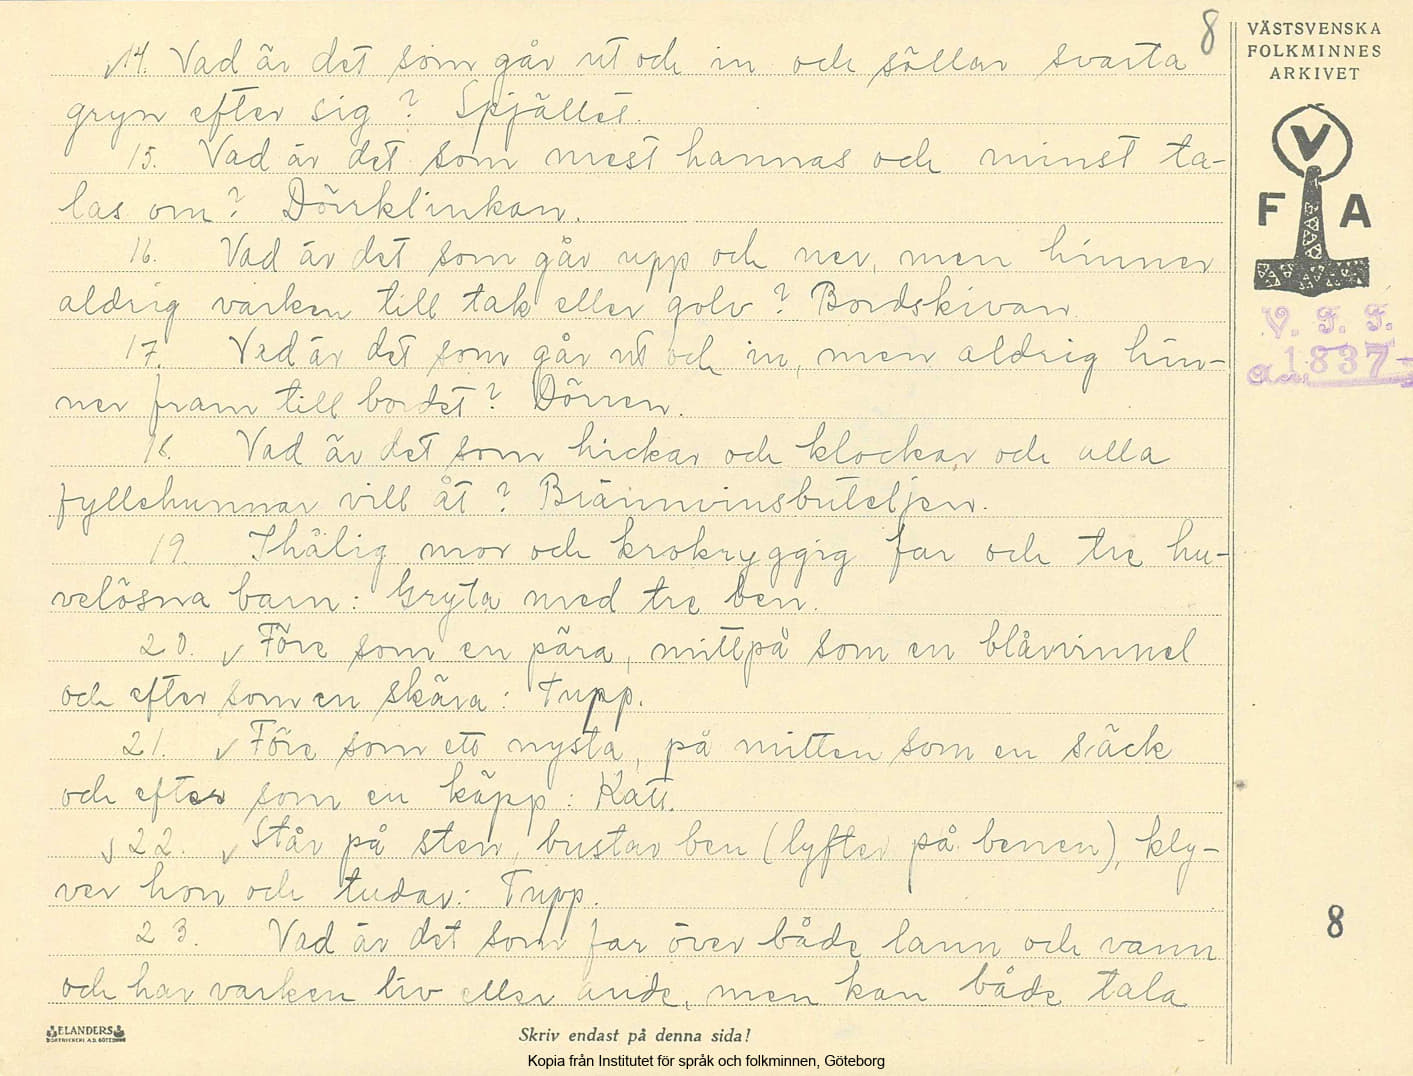 8
14. Vad är det som går ut och in och sållar svarta
gryn efter sig? Spjället.
15. Vad är det som mest hannas och minst ta-
las om? Dörrklinkan.
16. Vad är det som går upp och ner, men hinner
aldrig varken till tak eller golv? Bordskivan.
17. Vad är det som går ut och in, men aldrig hin-
ner fram till bordet? Dörren.
18. Vad är det som hickar och klockar och alla
fyllehunnar vill åt? Brännvinsbuteljen.
19. Ihålig mor och krokryggig far och tre hu-
velösna barn: Gryta med tre ben.
20. Före som en pära, mittpå som en
och efter som en skära: Tupp.
21. Före som ett nysta, på mitten som en säck
och efter som en käpp: Katt.
22. Står på sten, bustar ben (lyfter på benen), kly-
ver hon och tudar: Tupp.
23. Vad är det som far över både lann och vann
och har varken liv eller ande, men kan både tala
VÄSTSVENSKA
FOLKMINNES
ARKIVET
V
F A
V. F. F.
1837
8
ELANDERS
Skriv endast på denna sida!
Kopia från Institutet för språk och folkminnen, Göteborg